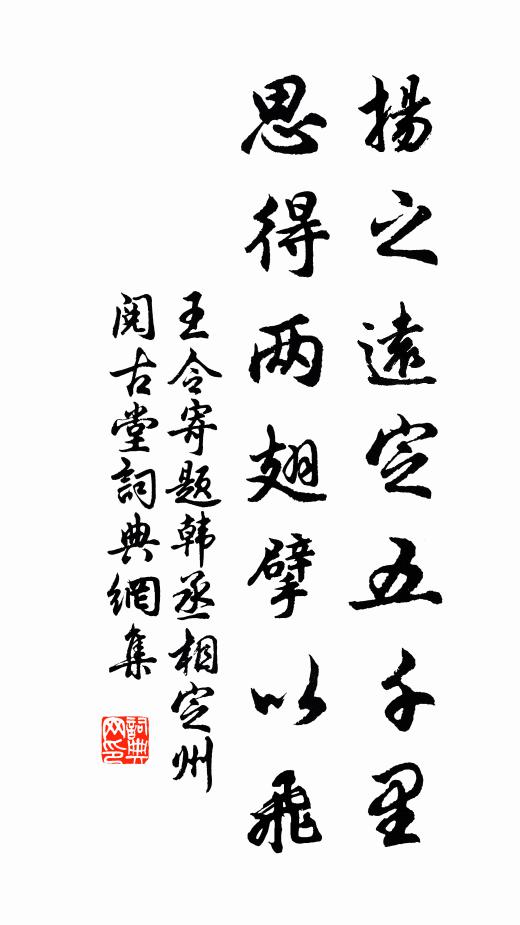 揚之遠定五千里
思得两翅擘以飛
王令寄题韩丞相定州
阅古堂詞典網集
詞典網印